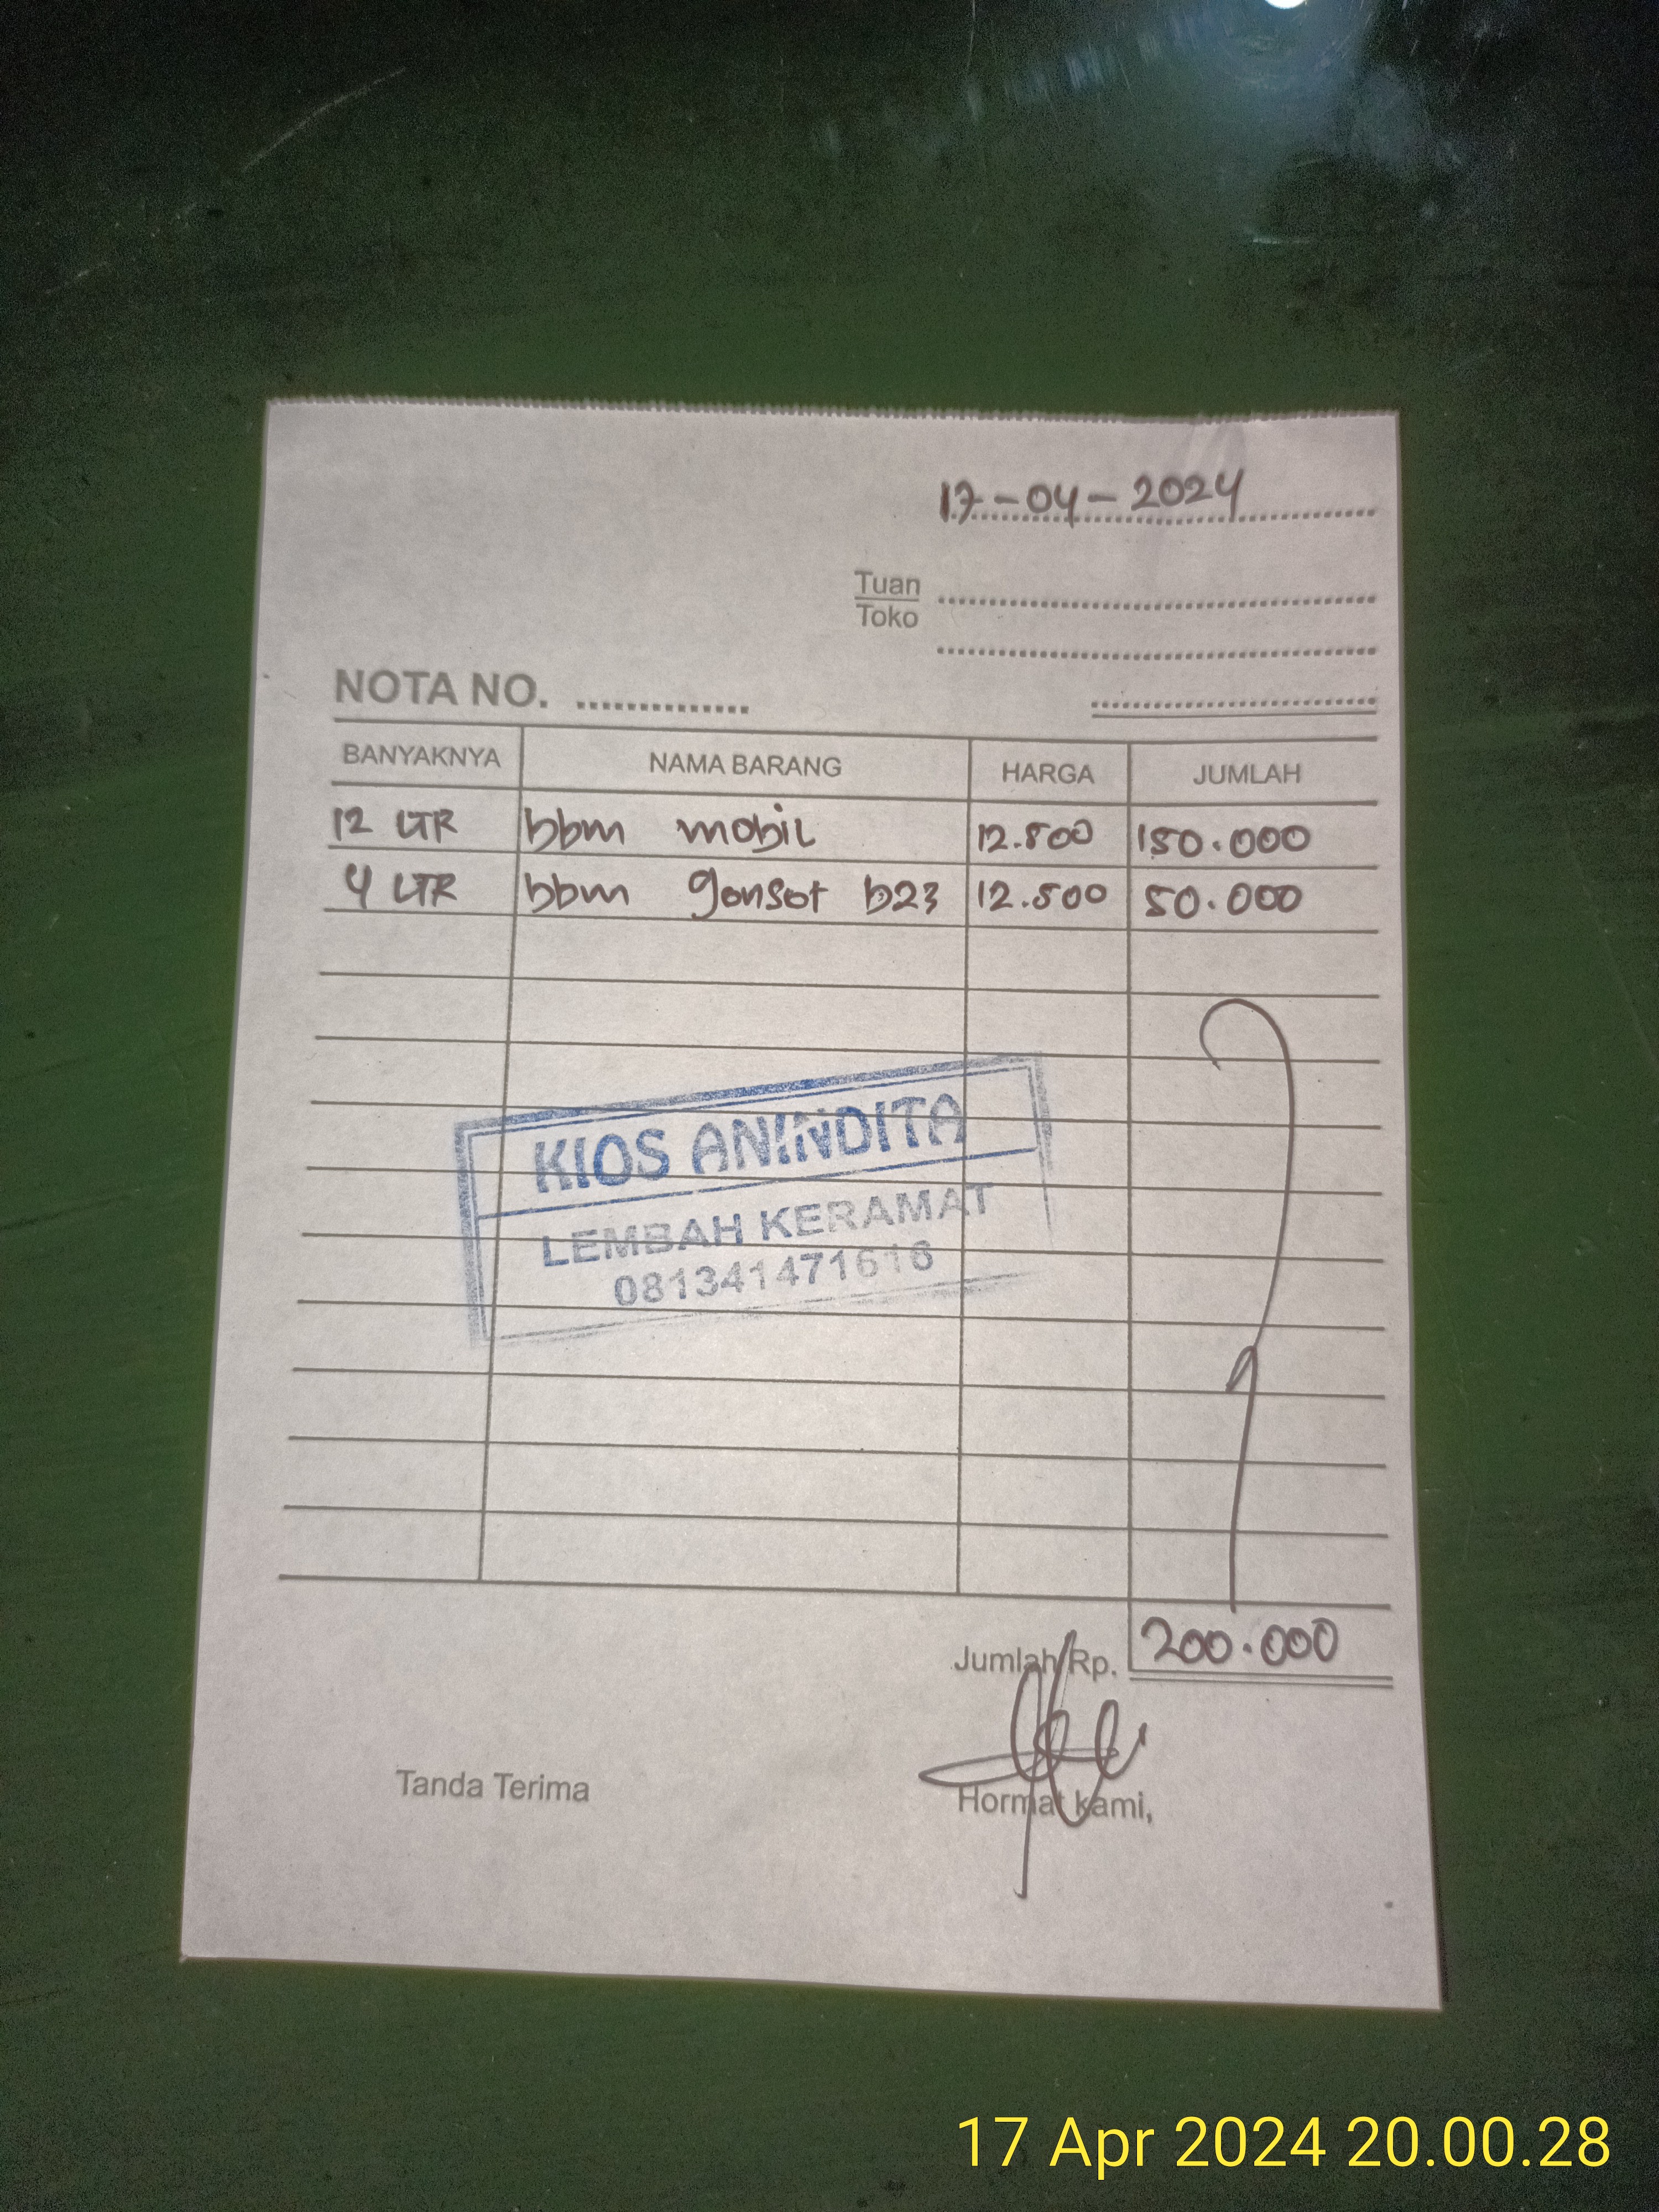 17-04-2024
Tuan
Toko
NOTA NO. ..............
BANYAKNYA NAMA BARANG HARGA JUMLAH
12 LTR bbm mobil 12.500 150.000
4 LTR bbm gensot b23 12.500 50.000
KIOS ANINDITA
LEMBAH KERAMAT
081341471616
Jumlah Rp. 200.000
Tanda Terima Hormat kami,
17 Apr 2024 20.00.28